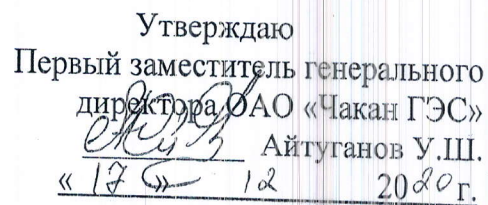 Утверждаю
Первый заместитель генерального
директора ОАО «Чакан ГЭС»
Айтуганов У.Ш.
« 17 » 12 2020 г.